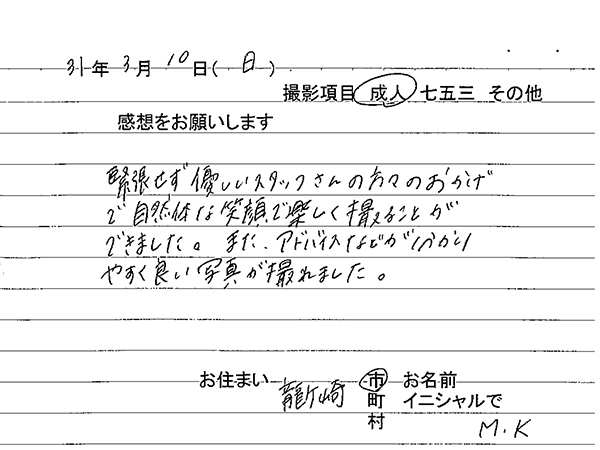 31年3月10日(日)
撮影項目 成人 七五三 その他
感想をお願いします
緊張せず優しいスタッフさんの方々のおかげ
で自然体な笑顔で楽しく撮ることが
できました。また、アドバイスなどが分かり
やすく良い写真が撮れました。
お住まい 龍ケ崎 市 お名前
町 イニシャルで
村 M.K